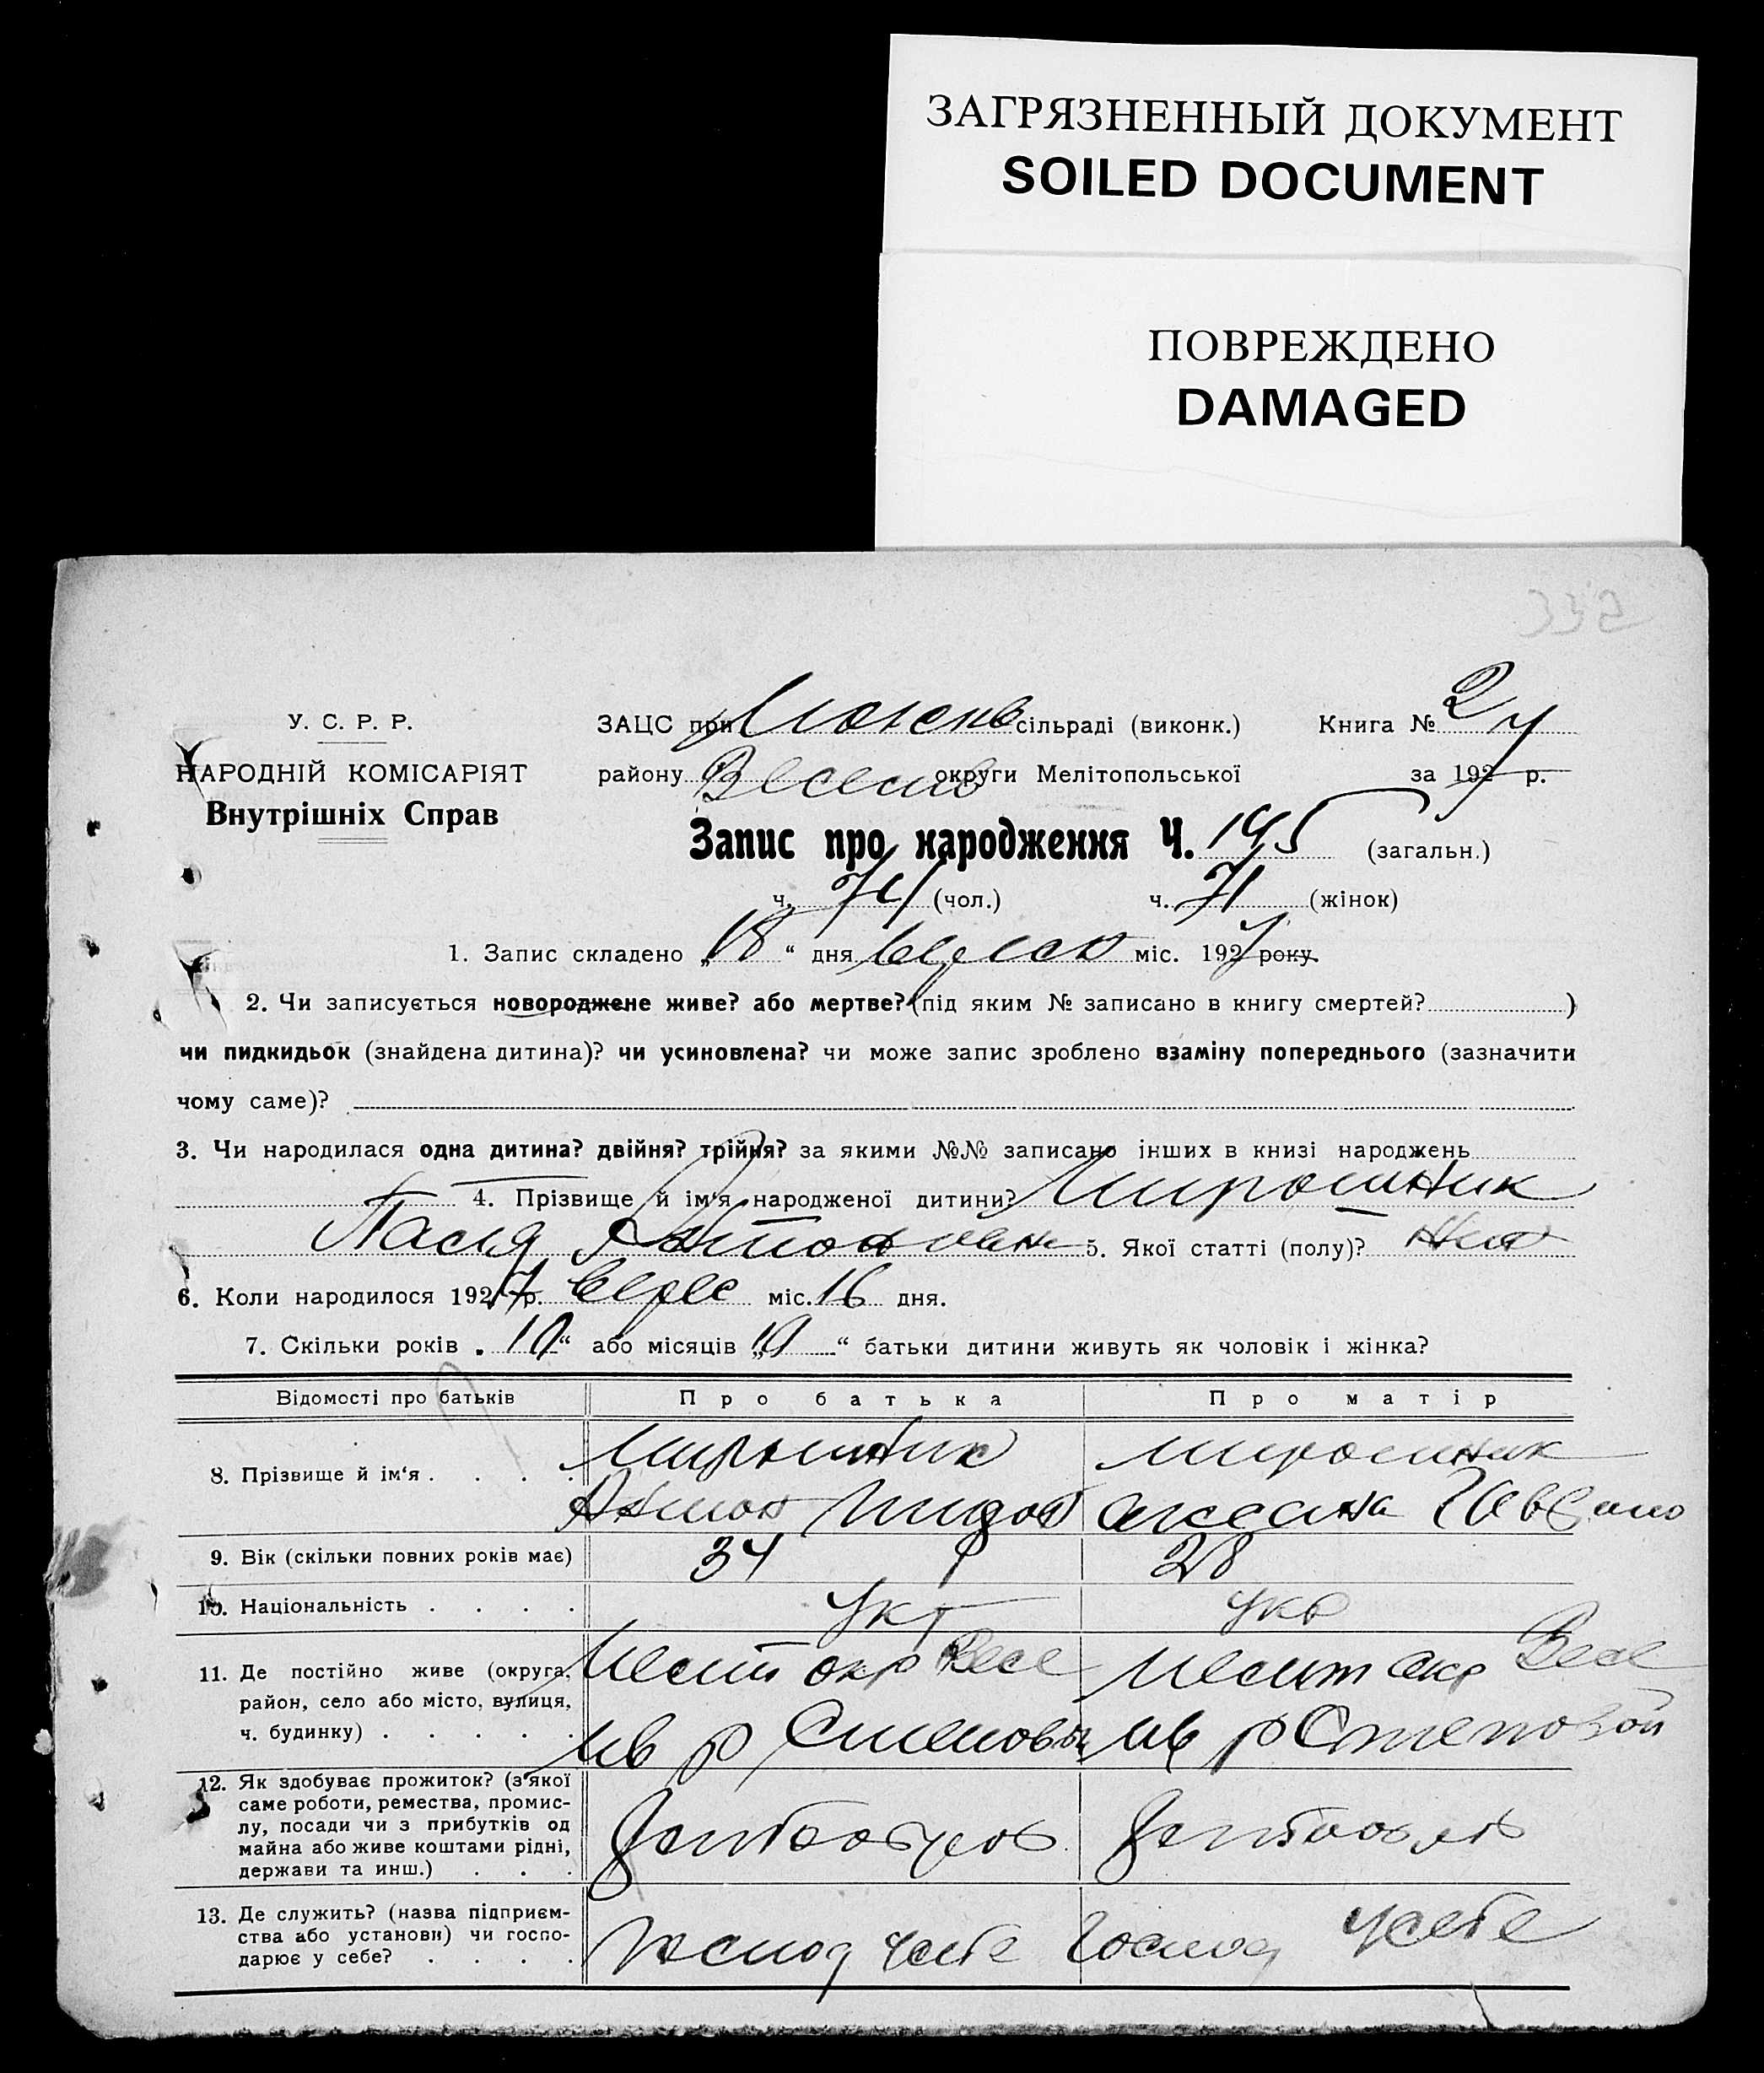 ЗАГРЯЗНЕННЫЙ ДОКУМЕНТ
SOILED DOCUMENT
ПОВРЕЖДЕНО
DAMAGED
332
У. С. Р. Р.
НАРОДНІЙ КОМІСАРІЯТ
Внутрішніх Справ
ЗАЦС при сільраді (виконк.) Книга № 2
району Веселів округи Мелітопольської за 1927 р.
Запис про народження Ч. 145 (загальн.)
ч. 74 (чол.) ч. 71 (жінок)
1. Запис складено „18“ дня вересня міс. 1927 року.
2. Чи записується новороджене живе? або мертве? (під яким № записано в книгу смертей? )
чи пидкидьок (знайдена дитина)? чи усиновлена? чи може запис зроблено взаміну попереднього (зазначити
чому саме)?
3. Чи народилася одна дитина? двійня? трійня? за якими №№ записано інших в книзі народжень
4. Прізвище й ім'я народженої дитини? Мирошник
5. Якої статті (полу)? жін
6. Коли народилося 1927 р. верес міс. 16 дня.
7. Скільки років „10“ або місяців „10“ батьки дитини живуть як чоловік і жінка?
Відомості про батьків Про батька Про матір
8. Прізвище й ім‘я . . . . Мирошник Мирошник
Антон
9. Вік (скільки повних років має) 34 28
10. Національність . . . . Укр Укр
11. Де постійно живе (округа, Мелит окр Весе Мелит окр Весе
район, село або місто, вулиця, лів р Степовой лів р Степовой
ч. будинку) . . . . .
12. Як здобуває прожиток? (з якої
саме роботи, ремества, промис-
лу, посади чи з прибутків од
майна або живе коштами рідні,
держави та инш.) . . .
13. Де служить? (назва підприєм-
ства або установи) чи госпо- господ усебе господ усебе
дарює у себе? . . . .